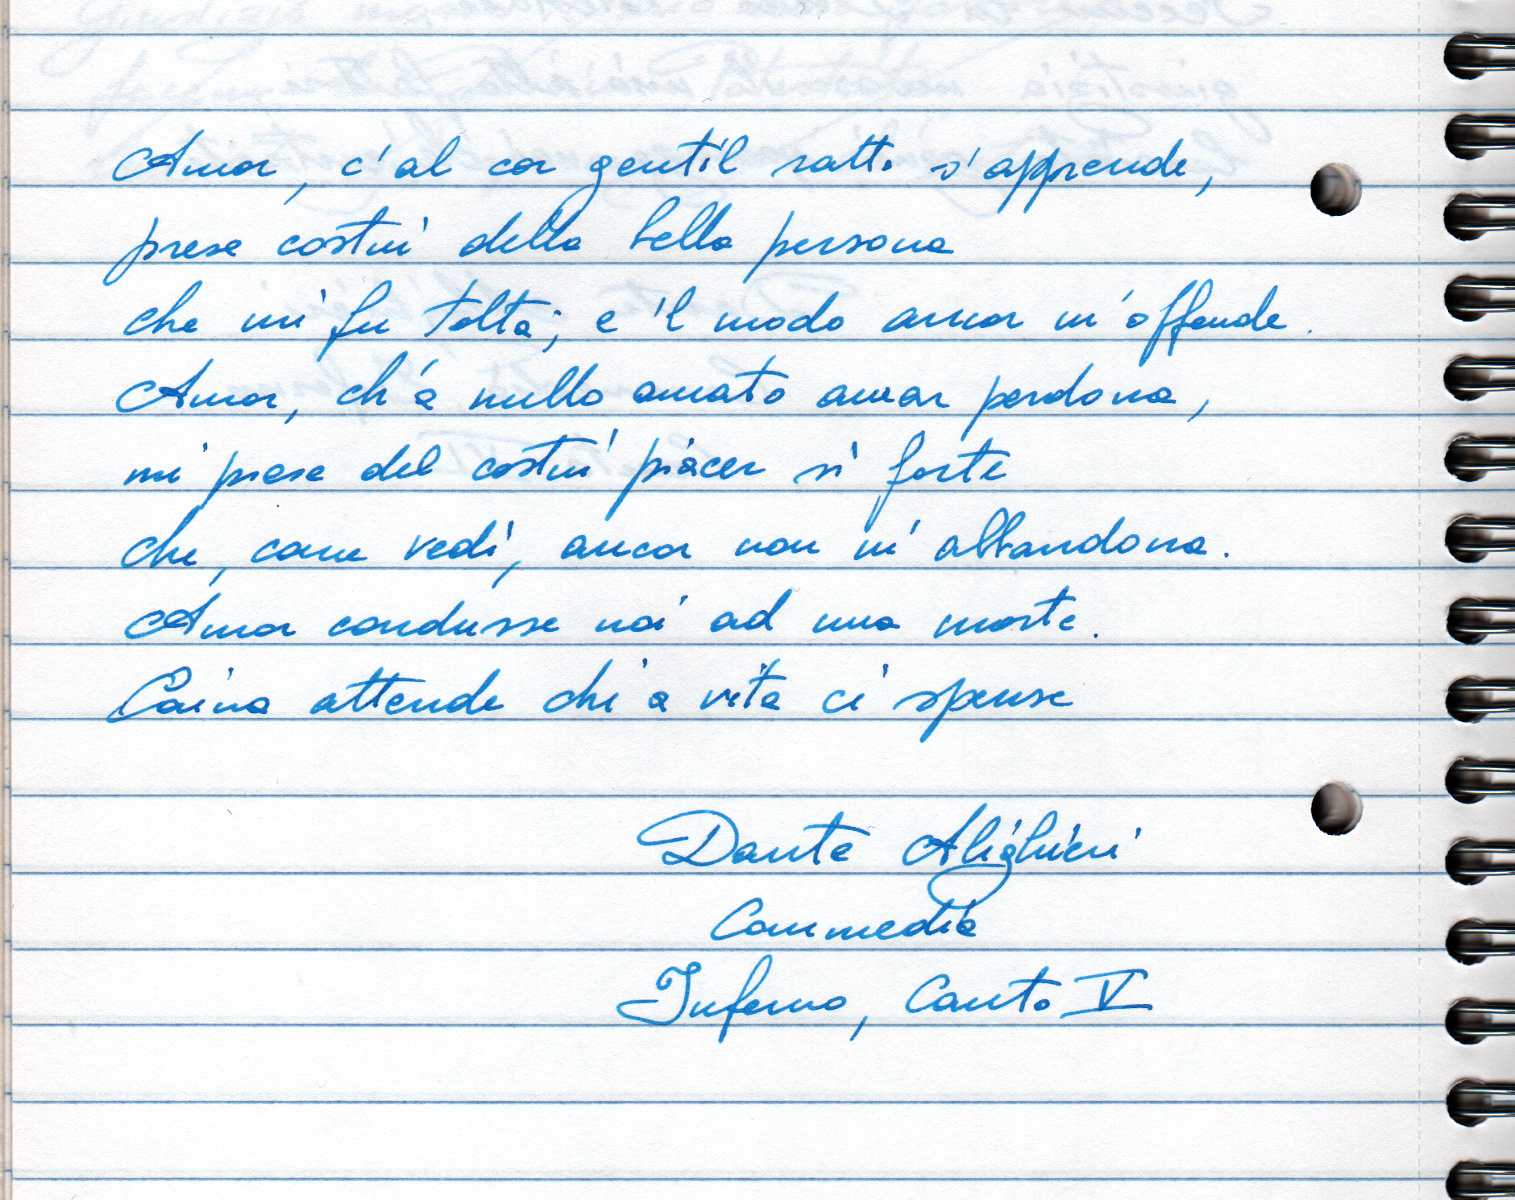 Amor, c'al cor gentil ratto s'apprende,
prese costui della bella persona
che mi fu tolta; e 'l modo ancor m'offende.
Amor, ch'a nullo amato amar perdona,
mi prese del costui piacer sì forte
che, come vedi, ancor non m'abbandona.
Amor condusse noi ad una morte.
Caina attende chi a vita ci spense
Dante Alighieri
Commedia
Inferno, Canto V